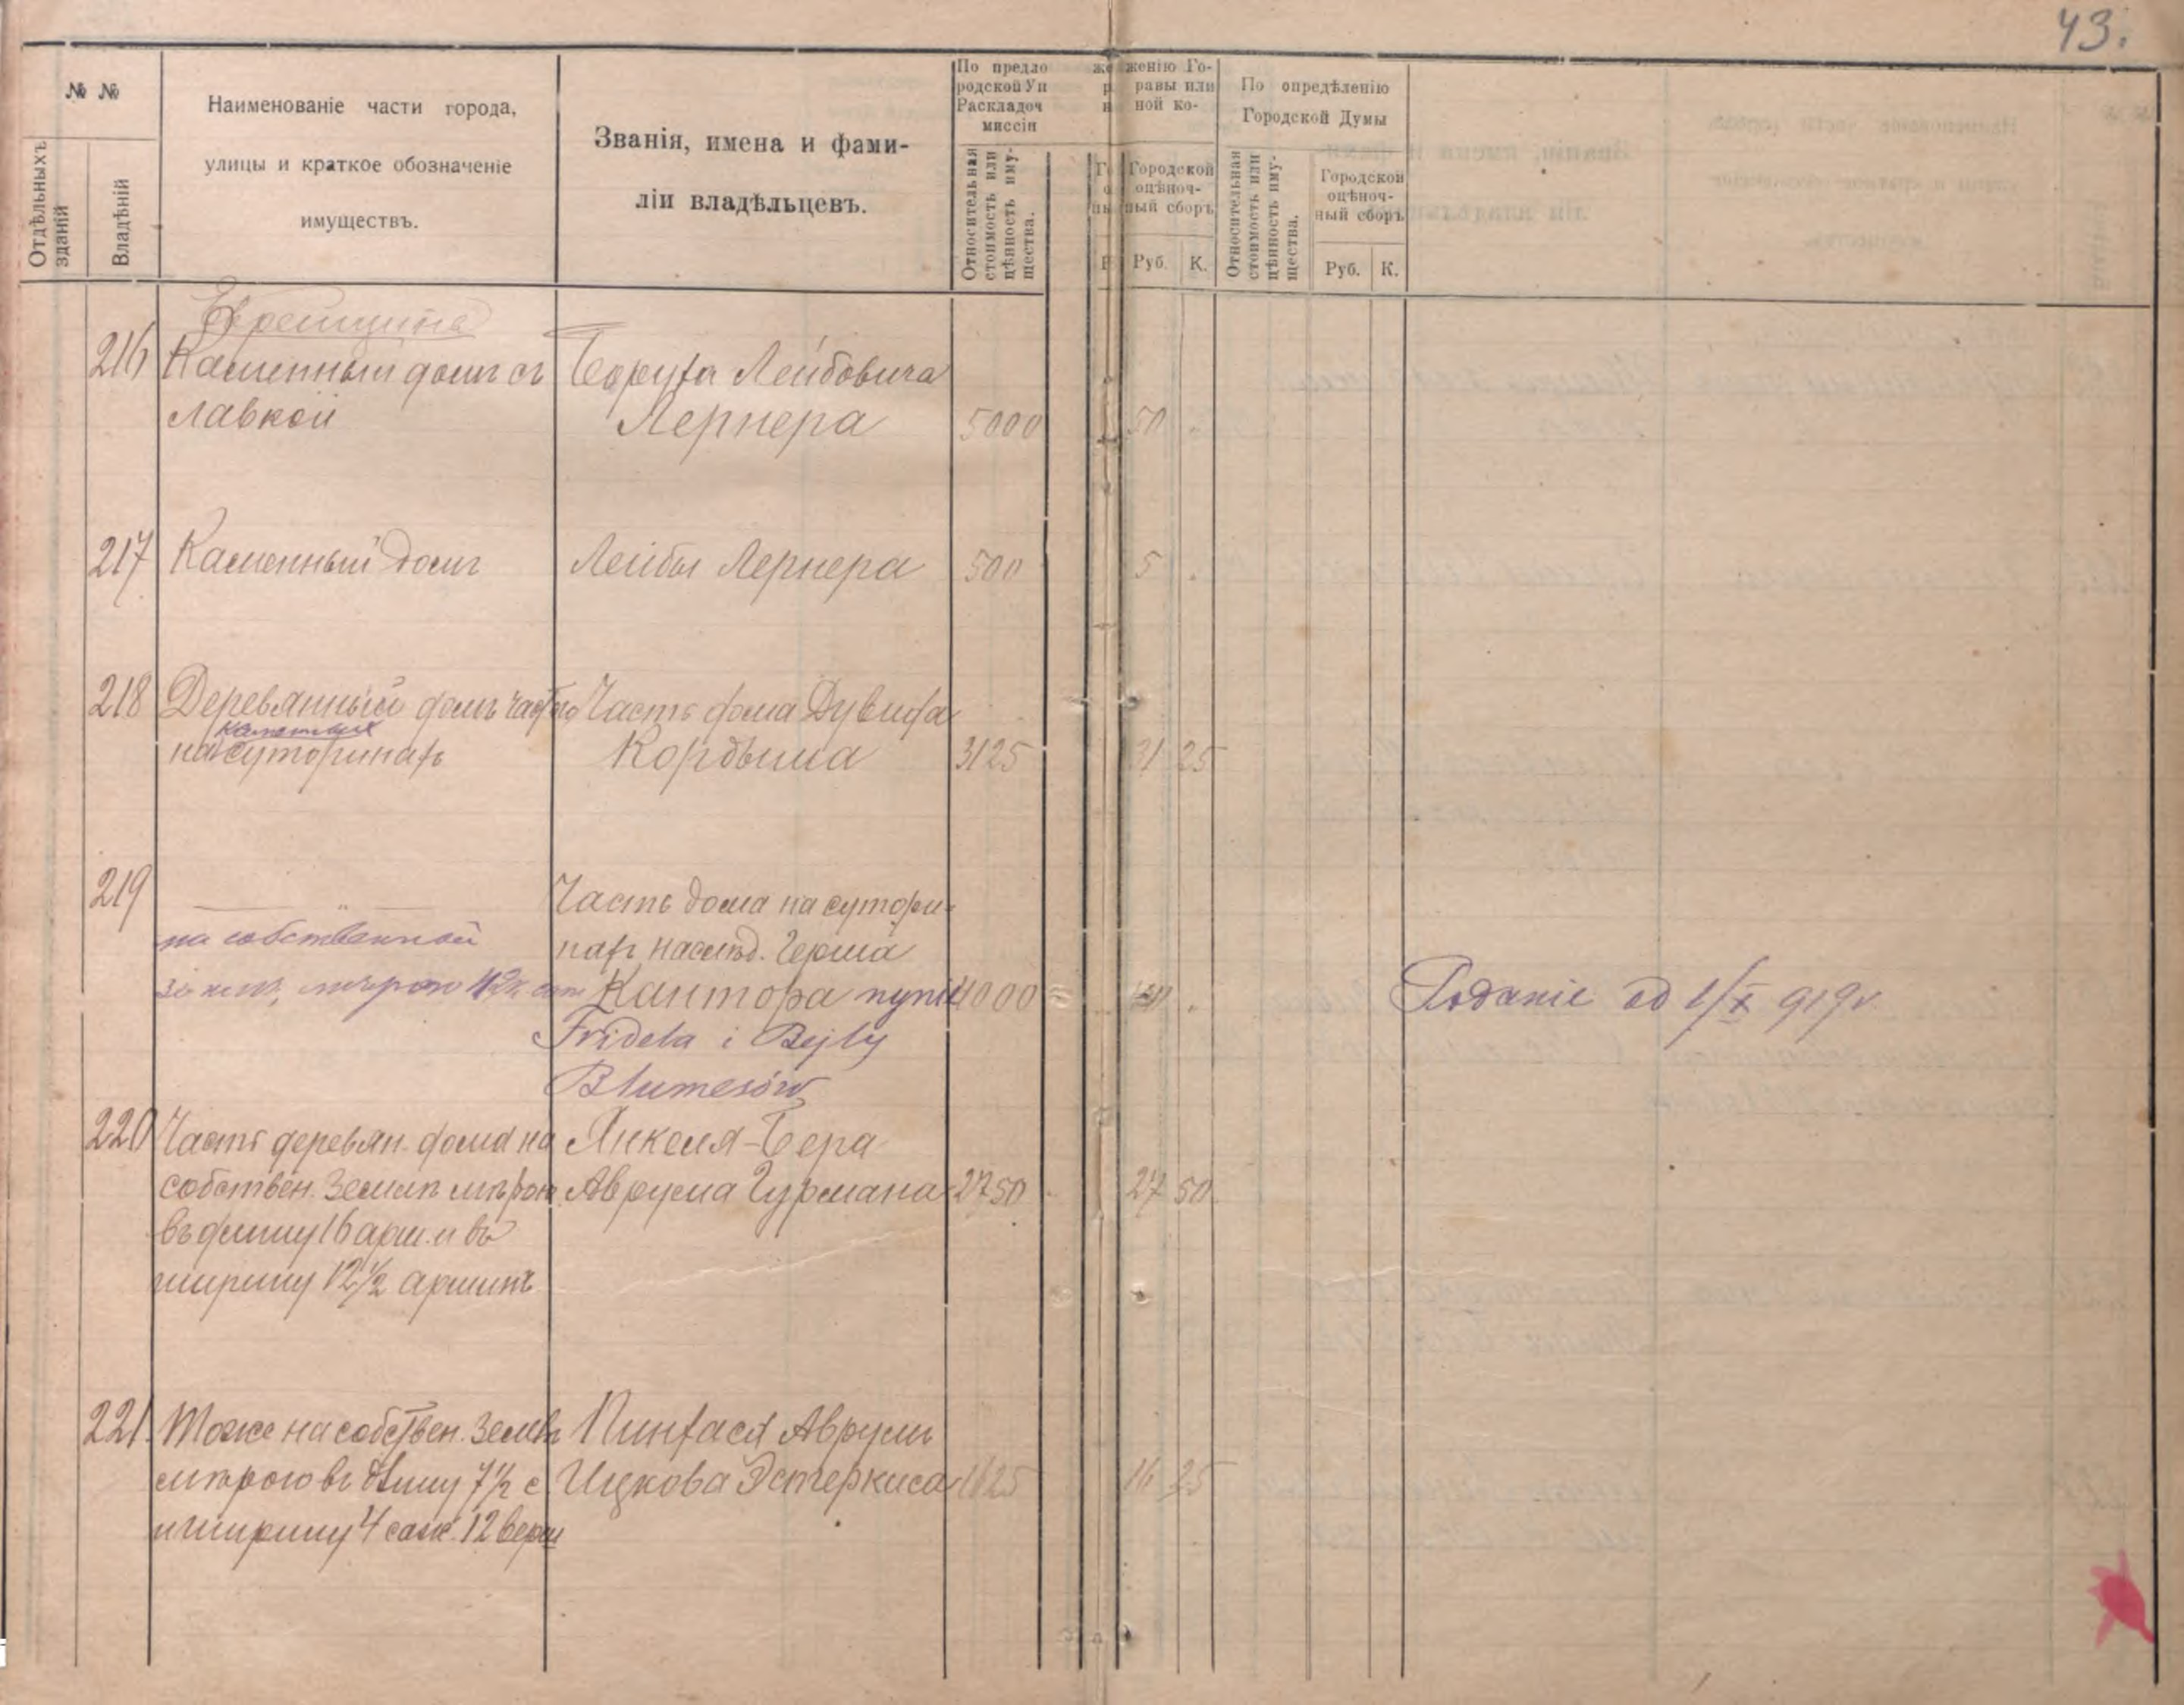 43.
№ №
Отдѣльныхъ зданій
Владѣній
Наименованіе части города,
улицы и краткое обозначеніе
имуществъ.
Званія, имена и фами-
ліи владѣльцевъ.
По предло
родской Уп
Раскладоч
миссіи
женію Го-
равы или
ной ко-
Относительная
стоимость или
цѣнность иму-
щества.
Городской
оцѣноч-
ный сборъ
Руб. К.
По опредѣленію
Городской Думы
Относительная
стоимость или
цѣнность иму-
щества.
Городской
оцѣноч-
ный сборъ
Руб. К.
216 Каменный домъ съ
лавкой
Боруха Лейбовича
Лернера
5000 50 .
217 Каменный домъ
Лейбы Лернера
500 5 .
218 Деревянный домъ
каменныхъ
на суторинахъ
Часть дома Дувида
Корбыша
3125 31 25
219 — " —
на собственной
Часть дома на сутори-
нахъ наслѣд. Герша
Кантора
Fridela i Bejly
Blumesów
4000 40 .
Podanie od 1/X 919 r.
220 Часть деревян. дома на
собствен. землѣ мѣрою
въ длину 16 арш. и въ
ширину 12 1/2 аршинъ
Янкеля-Бера
Аврума Гурмана
2750 27 50
221. Тоже на собствен. землѣ
мѣрою въ длину 7 1/2 с
и ширину 4 саж. 12 верш
Пинхаса Аврумъ
Ицкова Эстеркиса
1625 16 25